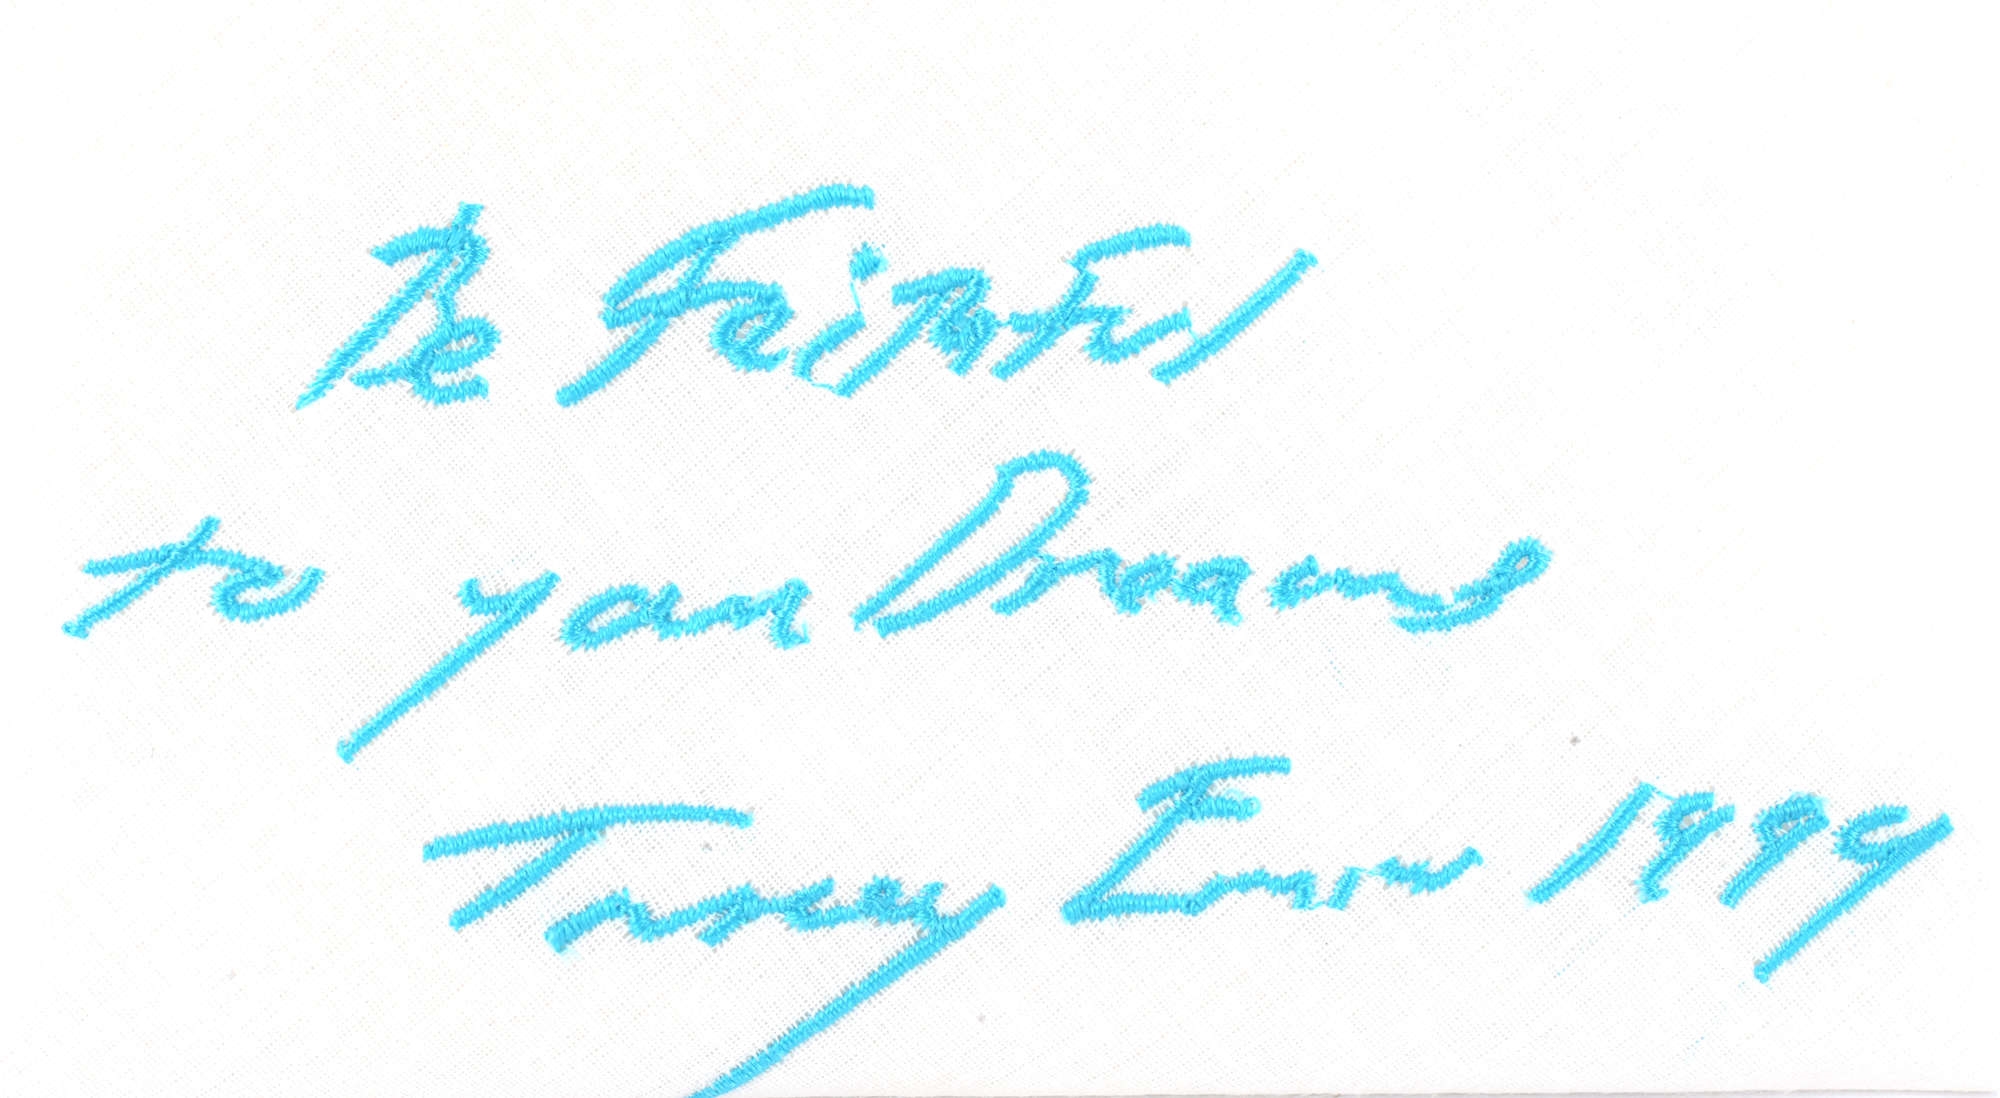 Be Faithful
to your Dreams
Tracey Emin 1999